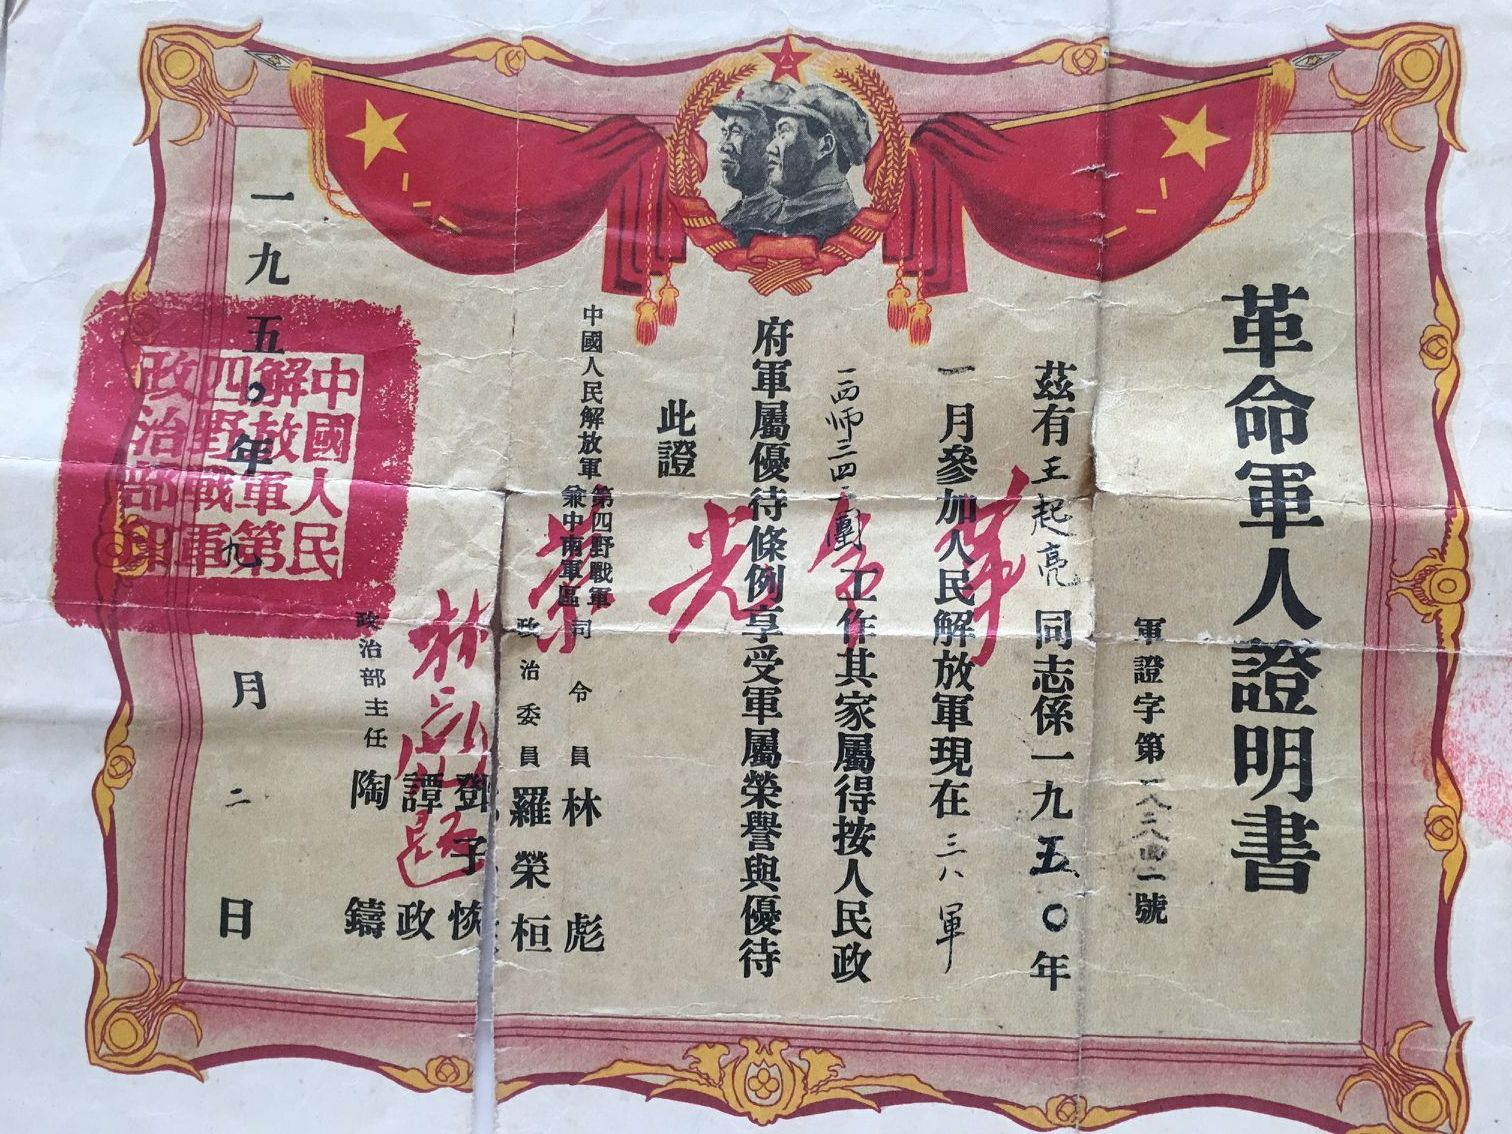 革命軍人證明書
軍證字第一八三八四一號
茲有王起亮同志係一九五〇年
一月參加人民解放軍現在三八軍
一一四師三四二團工作其家屬得按人民政
府軍屬優待條例享受軍屬榮譽與優待
此證
光荣
中國人民解放軍第四野戰軍兼中南軍區
司令員林彪
政治委員羅榮桓
鄧子恢
譚政
政治部主任陶鑄
一九五〇年九月二日
中國人民
解放軍第
四野戰軍
政治部印
八一